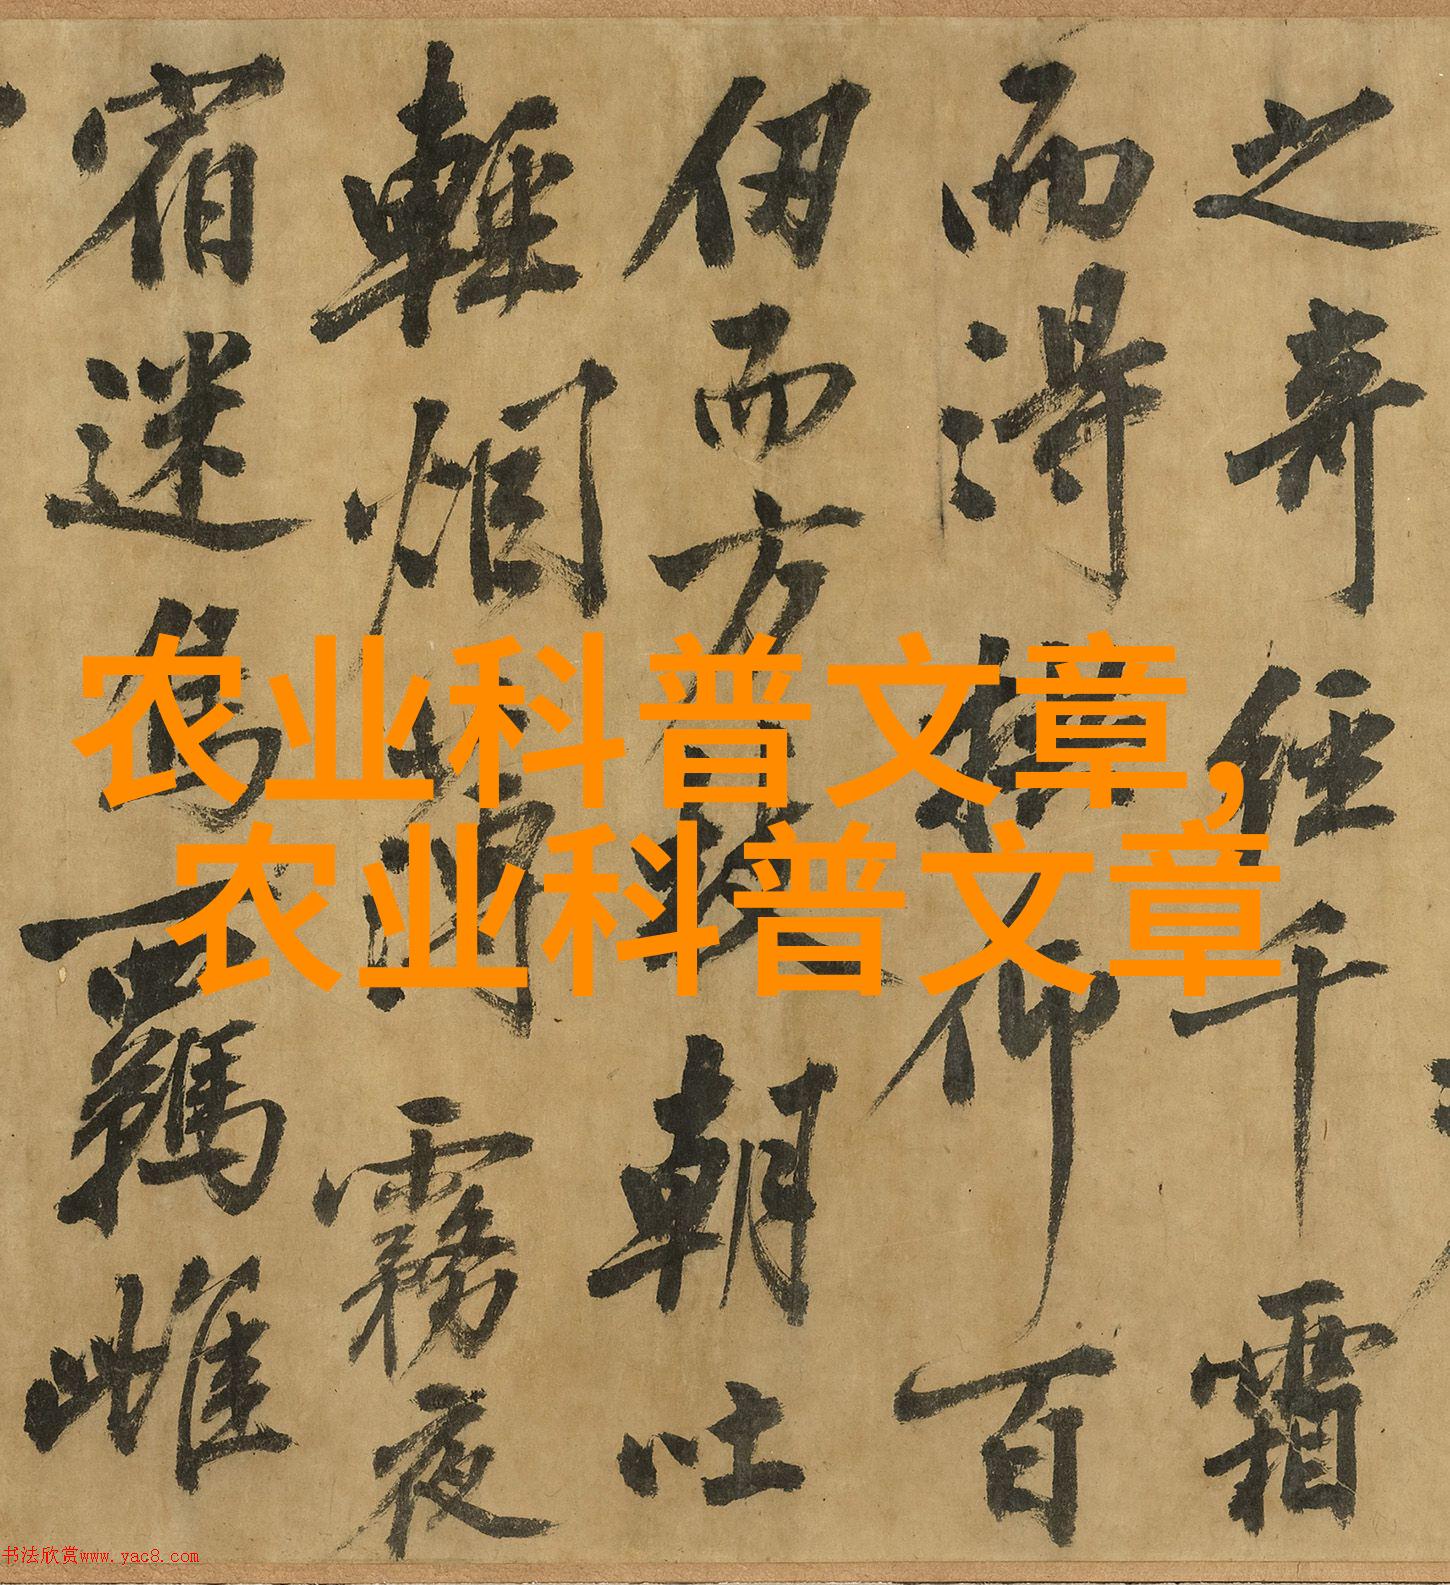 之奇经千霜
而得拱仰百
仞而方枝朝吐
輕烟薄霧夜
宿迷鳥羈雌
农业科普文章,
农业科普文章
书法欣赏www.yac8.com